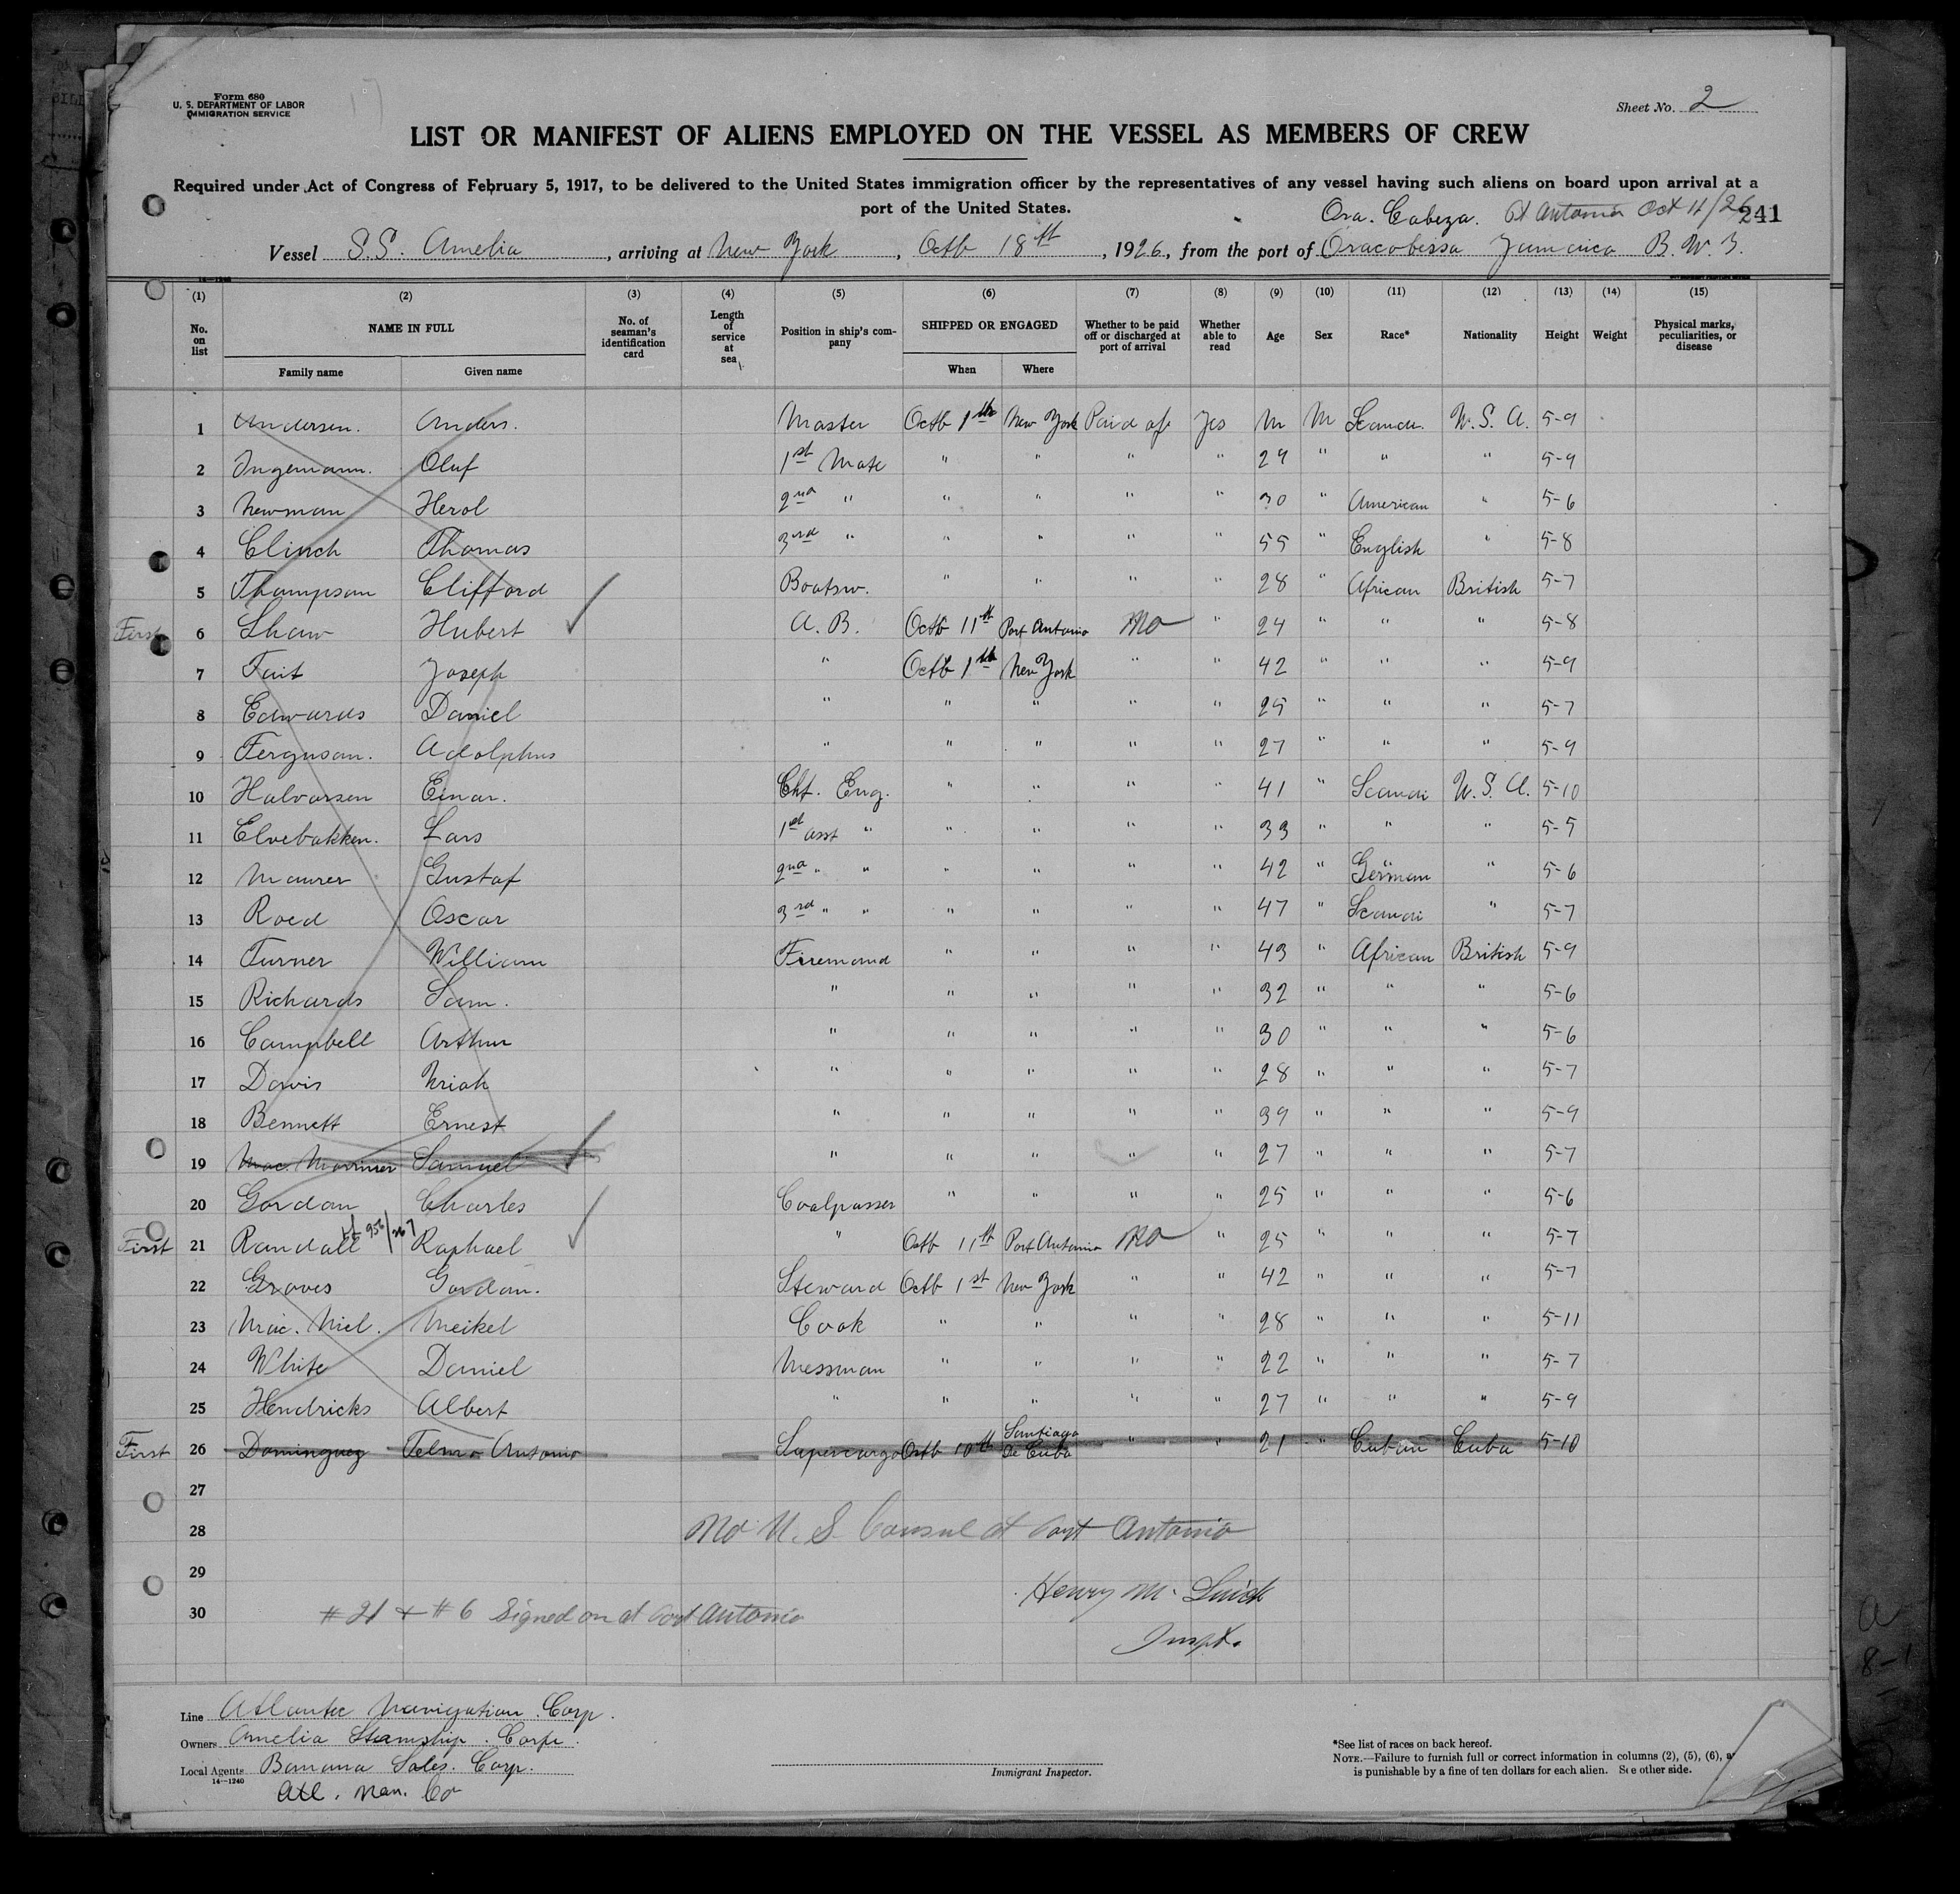 Form 680
U. S. DEPARTMENT OF LABOR
IMMIGRATION SERVICE
Sheet No. 2
LIST OR MANIFEST OF ALIENS EMPLOYED ON THE VESSEL AS MEMBERS OF CREW
Required under Act of Congress of February 5, 1917, to be delivered to the United States immigration officer by the representatives of any vessel having such aliens on board upon arrival at a
port of the United States.
Ora. Cabeza. Pt Antonio Oct 11/26 241
Vessel S.S. Amelia, arriving at New York, Octb 18th, 1926, from the port of Oracobessa Jamaica B. W. I.
(1) (2) (3) (4) (5) (6) (7) (8) (9) (10) (11) (12) (13) (14) (15)
No. on list NAME IN FULL No. of seaman's identification card Length of service at sea Position in ship's company SHIPPED OR ENGAGED Whether to be paid off or discharged at port of arrival Whether able to read Age Sex Race* Nationality Height Weight Physical marks, peculiarities, or disease
Family name Given name When Where
1 Andersen. Anders. Master Octb 1st New York Paid off Yes M M Scandi. U. S. A. 5-9
2 Ingemann. Oluf 1st Mate " " " " 29 " " " 5-9
3 Newman Herol 2nd " " " " " 30 " American " 5-6
4 Clinch Thomas 3rd " " " " " 55 " English " 5-8
5 Thompson Clifford Boatsw. " " " " 28 " African British 5-7
First 6 Shaw Hubert A. B. Octb 11th Port Antonio No " 24 " " " 5-8
7 Tait Joseph " Octb 1st New York " " 42 " " " 5-9
8 Edwards Daniel " " " " " 25 " " " 5-7
9 Ferguson. Adolphus " " " " " 27 " " " 5-9
10 Halvorsen Einar. Chf. Eng. " " " " 41 " Scandi U. S. A. 5-10
11 Elvebakken. Lars 1st asst " " " " " 33 " " " 5-5
12 Maurer Gustaf 2nd " " " " " " 42 " German " 5-6
13 Roed Oscar 3rd " " " " " " 47 " Scandi " 5-7
14 Turner William Firemand " " " " 43 " African British 5-9
15 Richards Sam. " " " " " 32 " " " 5-6
16 Campbell Arthur " " " " " 30 " " " 5-6
17 Davis Uriah " " " " " 28 " " " 5-7
18 Bennett Ernest " " " " " 39 " " " 5-9
19 Mac. Samuel " " " " " 27 " " " 5-7
20 Gordon Charles Coalpasser " " " " 25 " " " 5-6
First 21 Randall Raphael " Octb 11th Port Antonio No " 25 " " " 5-7
22 Groves Gordon. Steward Octb 1st New York " " 42 " " " 5-7
23 Mac. Niel. Meikel Cook " " " " 28 " " " 5-11
24 White Daniel Messman " " " " 22 " " " 5-7
25 Hendricks Albert " " " " " 27 " " " 5-9
First 26 Dominguez Telmo Antonio Supercargo Octb 10th Santiago De Cuba " " 21 " Cuban Cuba 5-10
27
28 No U. S. Consul at Port Antonio
29 Henry M.
30 # 21 + # 6 Signed on at Port Antonio
Inspt.
Line Atlantic Navigation Corp.
Owners Amelia Steamship. Corp.
Local Agents Banana Sales. Corp.
14-1240
Atl. Nav. Co
Immigrant Inspector.
*See list of races on back hereof.
NOTE.—Failure to furnish full or correct information in columns (2), (5), (6), a
is punishable by a fine of ten dollars for each alien. See other side.